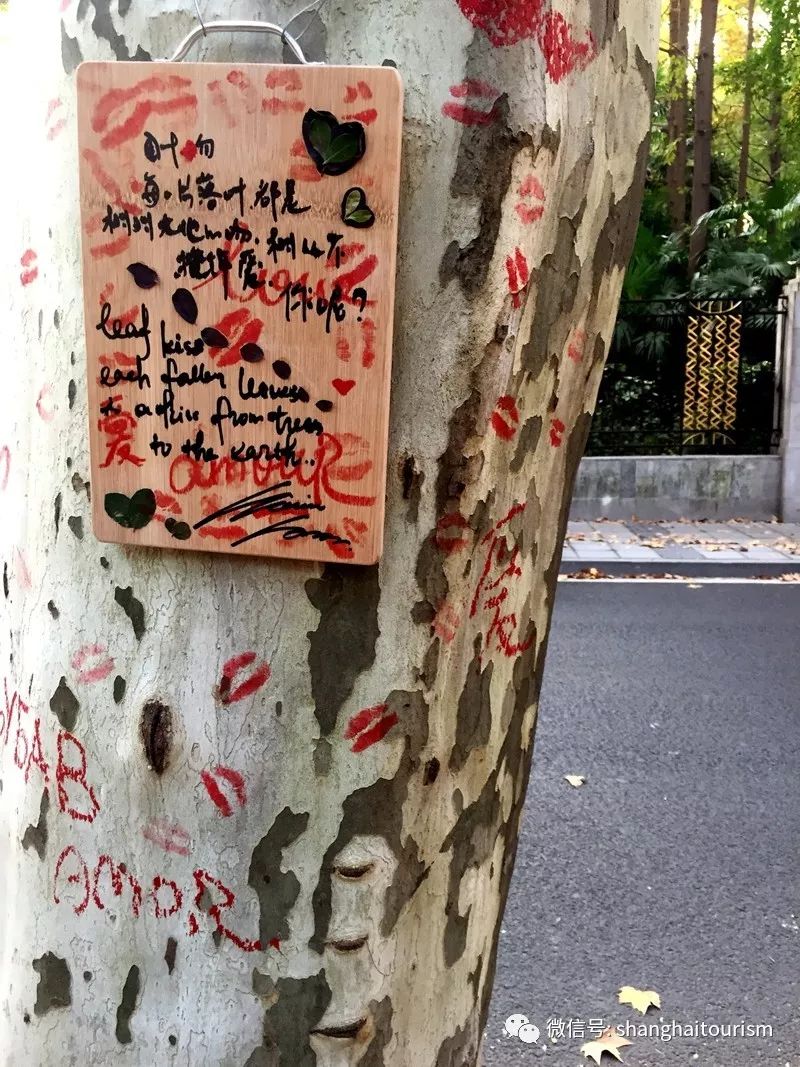 叶吻
每一片落叶都是
树对大地的吻.树 不
愛.你呢?
leaf kiss
each fallen leaves
from trees
to the earth..
愛
amouR
愛
AMOR
微信号: shanghaitourism